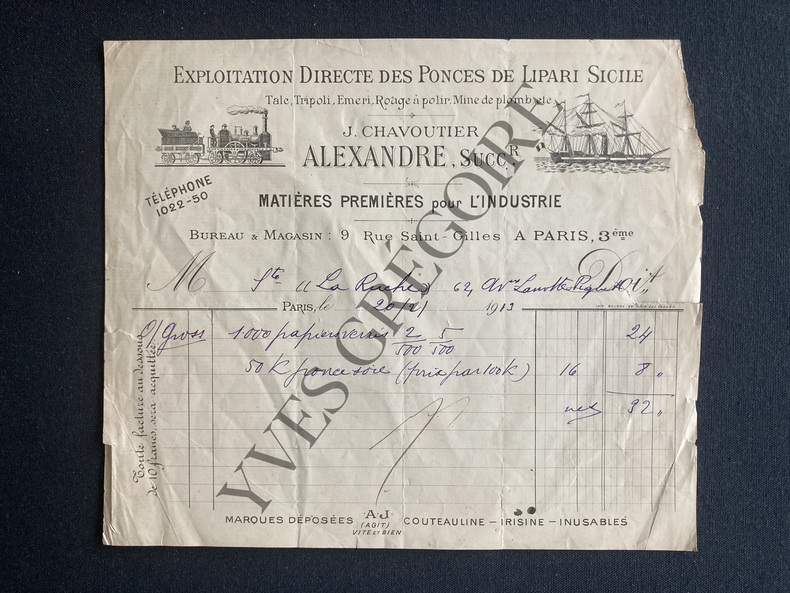 EXPLOITATION DIRECTE DES PONCES DE LIPARI SICILE
Talc, Tripoli, Emeri, Rouge à polir, Mine de plomb, etc
J. CHAVOUTIER
ALEXANDRE, SUCCR
TÉLÉPHONE
1022-50
MATIÈRES PREMIÈRES pour L'INDUSTRIE
BUREAU & MAGASIN : 9 Rue Saint-Gilles A PARIS, 3ème
M Sté "La Ruche" 62, Avue Lamotte Piquet Doit
PARIS, le 20/2/ 1913
O/Gross 1000 papier verrés 2/500 5/500 24
50 K ponce soie (prix par 100 K) 16 8 "
net 32 "
Toute facture au dessous
de 10 francs, sera acquittée
MARQUES DÉPOSÉES A·J COUTEAULINE – IRISINE – INUSABLES
(AGIT)
VITE ET BIEN
YVES GRÉGOIRE